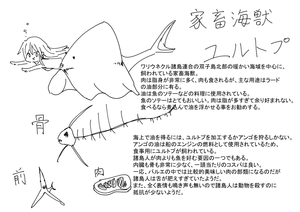 家畜海獣
ユルトプ
ワリウネクル諸島連合の双子島北部の暖かい海域を中心に、
飼われている家畜海獣。
肉は脂身が非常に多く、肉も食されるが、主な用途はラード
の油部分に有る。
油は魚のソテーなどの料理に使用されている。
魚のソテーはとてもおいしい。肉は脂が多すぎて余り好まれない。
食べるなら煮込んで油を浮かせる事をお勧めする。
骨
海上で油を得るには、ユルトプを加工するかアンゴを狩るしかない。
アンゴの油は船のエンジンの燃料として使用されているため、
食事用にユルトプが飼われている。
諸島人が肉よりも魚を好む要因の一つでもある。
肉臓も骨も非常に少なく、一頭当たりのコスパは良い。
一応、パルエの中では比較的美味しい肉の部類になるのだが
諸島人は舌が肥えすぎていたようだ。
また、全く表情も鳴き声も無いので諸島人は動物を殺すのに
抵抗が少ないようだ。
前
肉